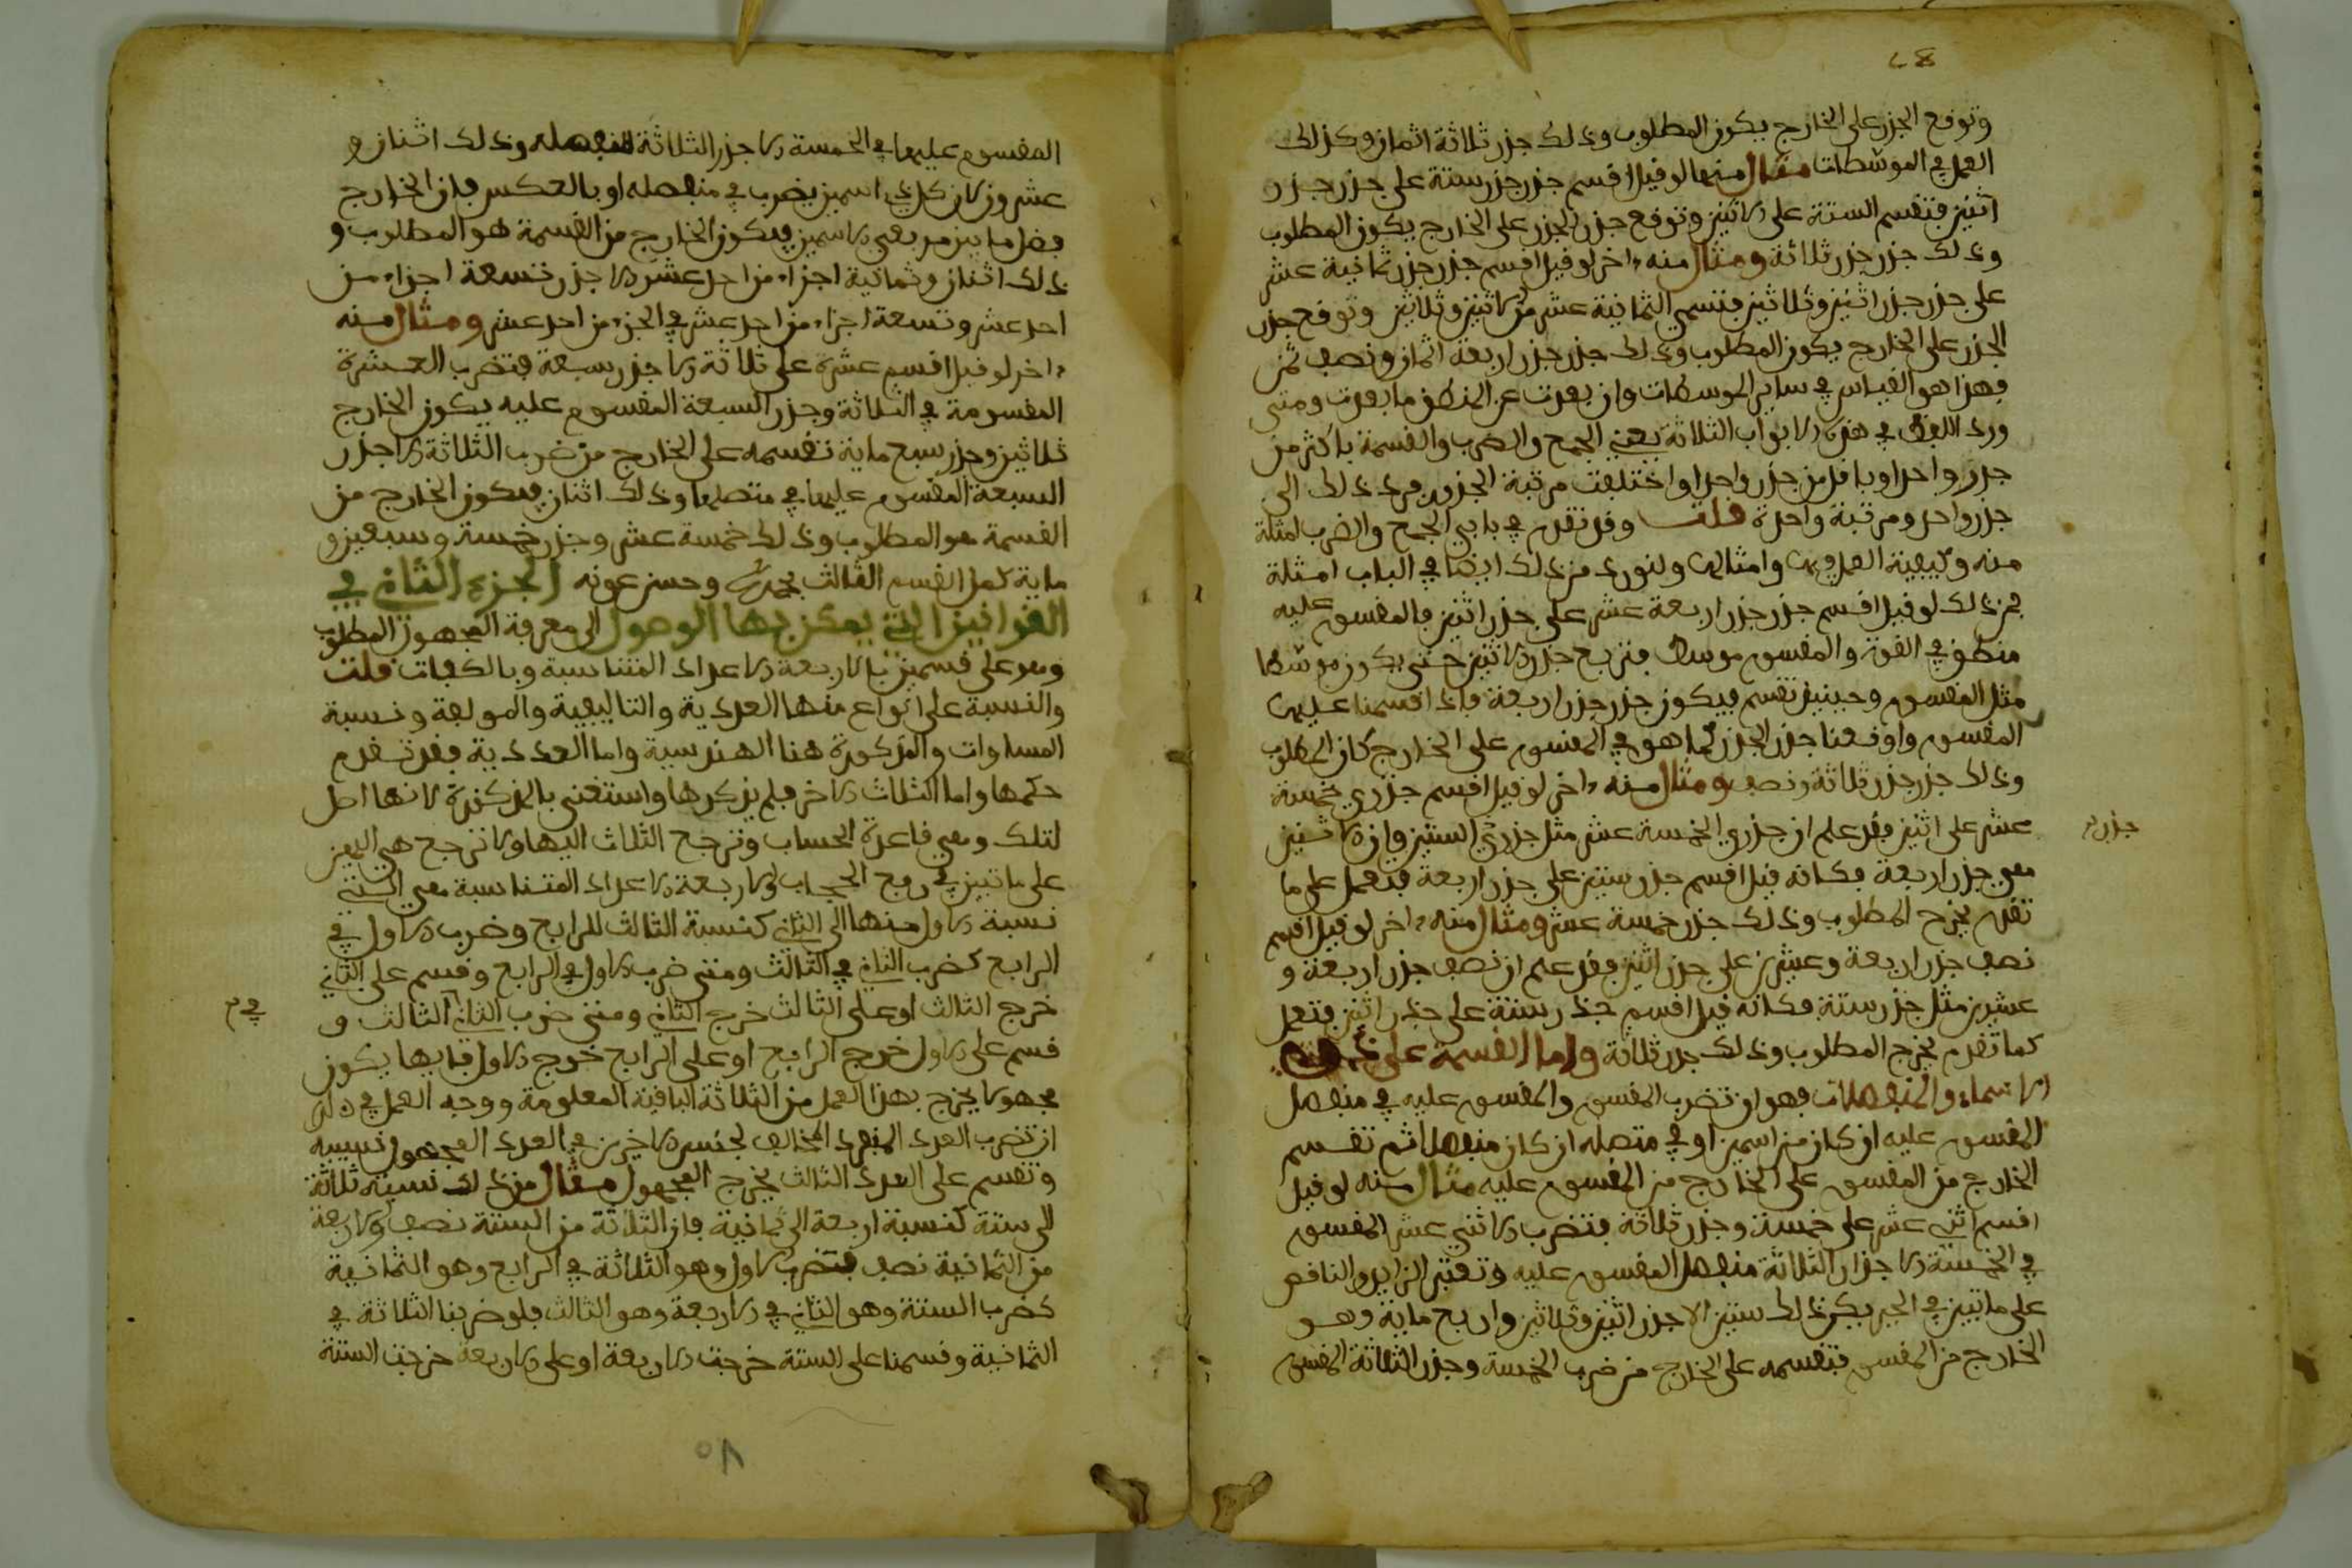 وتوقع الجزر على الخارج يكون المطلوب وذلك جزر ثلاثة اثمان وكذلك
العمل في الموسطات مثال منها لو قيل اقسم جزر جزر ستة على جزر جزر
اثنين فتقسم الستة على الاثنين وتوقع جزر الجزر على الخارج يكون المطلوب
وذلك جزر جزر ثلاثة ومثال منه اخر لو قيل اقسم جزر جزر ثمانية عشر
على جزر جزر اثنين وثلاثين فتسمي الثمانية عشر من الاثنين وثلاثين وتوقع جزر
الجزر على الخارج يكون المطلوب وذلك جزر جزر اربعة اثمان ونصف ثمن
فهذا هو القياس في ساير الموسطات وان بعدت عن المنطق ما بعدت ومتى
ورد اللفظ في هذه الابواب الثلاثة يعني الجمع والضرب والقسمة باكثر من
جزر واحد او باقل من جزر واحد او اختلفت مرتبة الجزور فرد ذلك الى
جزر واحد ومرتبة واحدة قلت وقد تقدم في بابي الجمع والضرب امثلة
منه وكيفية العمل فيه وامثاله ولنورد من ذلك ايضا في الباب امثلة
فمن ذلك لو قيل اقسم جزر جزر اربعة عشر على جزر اثنين فالمقسوم عليه
منطق في القوة والمقسوم موسط فتربع جزر الاثنين حتى يكون موسطا
مثل المقسوم وحينيذ تقسم فيكون جزر جزر اربعة فاذا قسمنا عليه
المقسوم واوقعنا جزر الجزر كما هو في المقسوم على الخارج كان المطلوب
وذلك جزر جزر ثلاثة ونصف ومثال منه اخر لو قيل اقسم جزري خمسة
عشر على اثنين فقد علم ان جزري الخمسة عشر مثل جزر الستين وان الاثنين
جزر
هي جزر اربعة فكانه قيل اقسم جزر ستين على جزر اربعة فتعمل على ما
تقدم يخرج المطلوب وذلك جزر خمسة عشر ومثال منه اخر لو قيل اقسم
نصف جزر اربعة وعشرين على جزر اثنين فقد علم ان نصف جزر اربعة و
عشرين مثل جزر ستة فكانه قيل اقسم جذر ستة على جذر اثنين فتعمل
كما تقدم يخرج المطلوب وذلك جزر ثلاثة واما القسمة على
الاسماء والمنفصلات فهو ان تضرب المقسوم والمقسوم عليه في منفصل
المقسوم عليه ان كان من اسمين او في متصله ان كان منفصلا ثم تقسم
الخارج من المقسوم على الخارج من المقسوم عليه مثال منه لو قيل
اقسم اثني عشر على خمسة وجزر ثلاثة فتضرب الاثني عشر المقسوم
في الخمسة الا جزر الثلاثة منفصل المقسوم عليه وتعتبر الزايد والناقص
على ما تبين في الجبر يكن ذلك ستين الا جزر اثنين وثلاثين واربع ماية وهو
الخارج من المقسوم فتقسمه على الخارج من ضرب الخمسة وجزر الثلاثة المقسوم
المقسوم عليها في الخمسة الا جزر الثلاثة منفصله وذلك اثنان و
عشرون لان كل ذي اسمين يضرب في منفصله او بالعكس فان الخارج
فضل ما بين مربعي الاسمين فيكون الخارج من القسمة هو المطلوب و
ذلك اثنان وثمانية اجزاء من احد عشر الا جزر تسعة اجزاء من
احد عشر وتسعة اجزاء من احد عشر في الجزء من احد عشر ومثال منه
اخر لو قيل اقسم عشرة على ثلاثة الا جزر سبعة فتضرب العشرة
المقسومة في الثلاثة وجزر السبعة المقسوم عليه يكون الخارج
ثلاثين وجزر سبع ماية تقسمه على الخارج من ضرب الثلاثة الا جزر
السبعة المقسوم عليها في متصلها وذلك اثنان فيكون الخارج من
القسمة هو المطلوب وذلك خمسة عشر وجزر خمسة وسبعين و
ماية كمل القسم الثالث بحمد الله وحسن عونه الجزء الثاني في
القوانين التي يمكن بها الوصول الى معرفة المجهول المطلوب
وهو على قسمين بالاربعة الاعداد المتناسبة وبالكفات قلت
والنسبة على انواع منها العددية والتاليفية والمولفة ونسبة
المساوات والمذكورة هنا الهندسية واما العددية فقد تقدم
حكمها واما الثلاث الاخر فلم يذكرها واستغنى بالمذكورة لانها اصل
لتلك وهي قاعدة الحساب وترجع الثلاث اليها ولا ترجع هي اليهن
على ما تبين في رفع الحجاب والاربعة الاعداد المتناسبة هي التي
نسبة الاول منها الى الثاني كنسبة الثالث للرابع وضرب الاول في
الرابع كضرب الثاني في الثالث ومتى ضرب الاول في الرابع وقسم على الثاني
خرج الثالث او على الثالث خرج الثاني ومتى ضرب الثاني الثالث و
في
قسم على الاول خرج الرابع او على الرابع خرج الاول فايها يكون
مجهولا يخرج بهذا العمل من الثلاثة الباقية المعلومة ووجه العمل في ذلك
ان تضرب العدد المنفرد المخالف لجنس الاخرين في العدد المجهول نسبيه
وتقسم على العدد الثالث يخرج المجهول مثال من ذلك نسبة ثلاثة
الى ستة كنسبة اربعة الى ثمانية فان الثلاثة من الستة نصف والاربعة
من الثمانية نصف فتضرب الاول وهو الثلاثة في الرابع وهو الثمانية
كضرب الستة وهو الثاني في الاربعة وهو الثالث فلو ضربنا الثلاثة في
الثمانية وقسمنا على الستة خرجت الاربعة او على الاربعة خرجت الستة